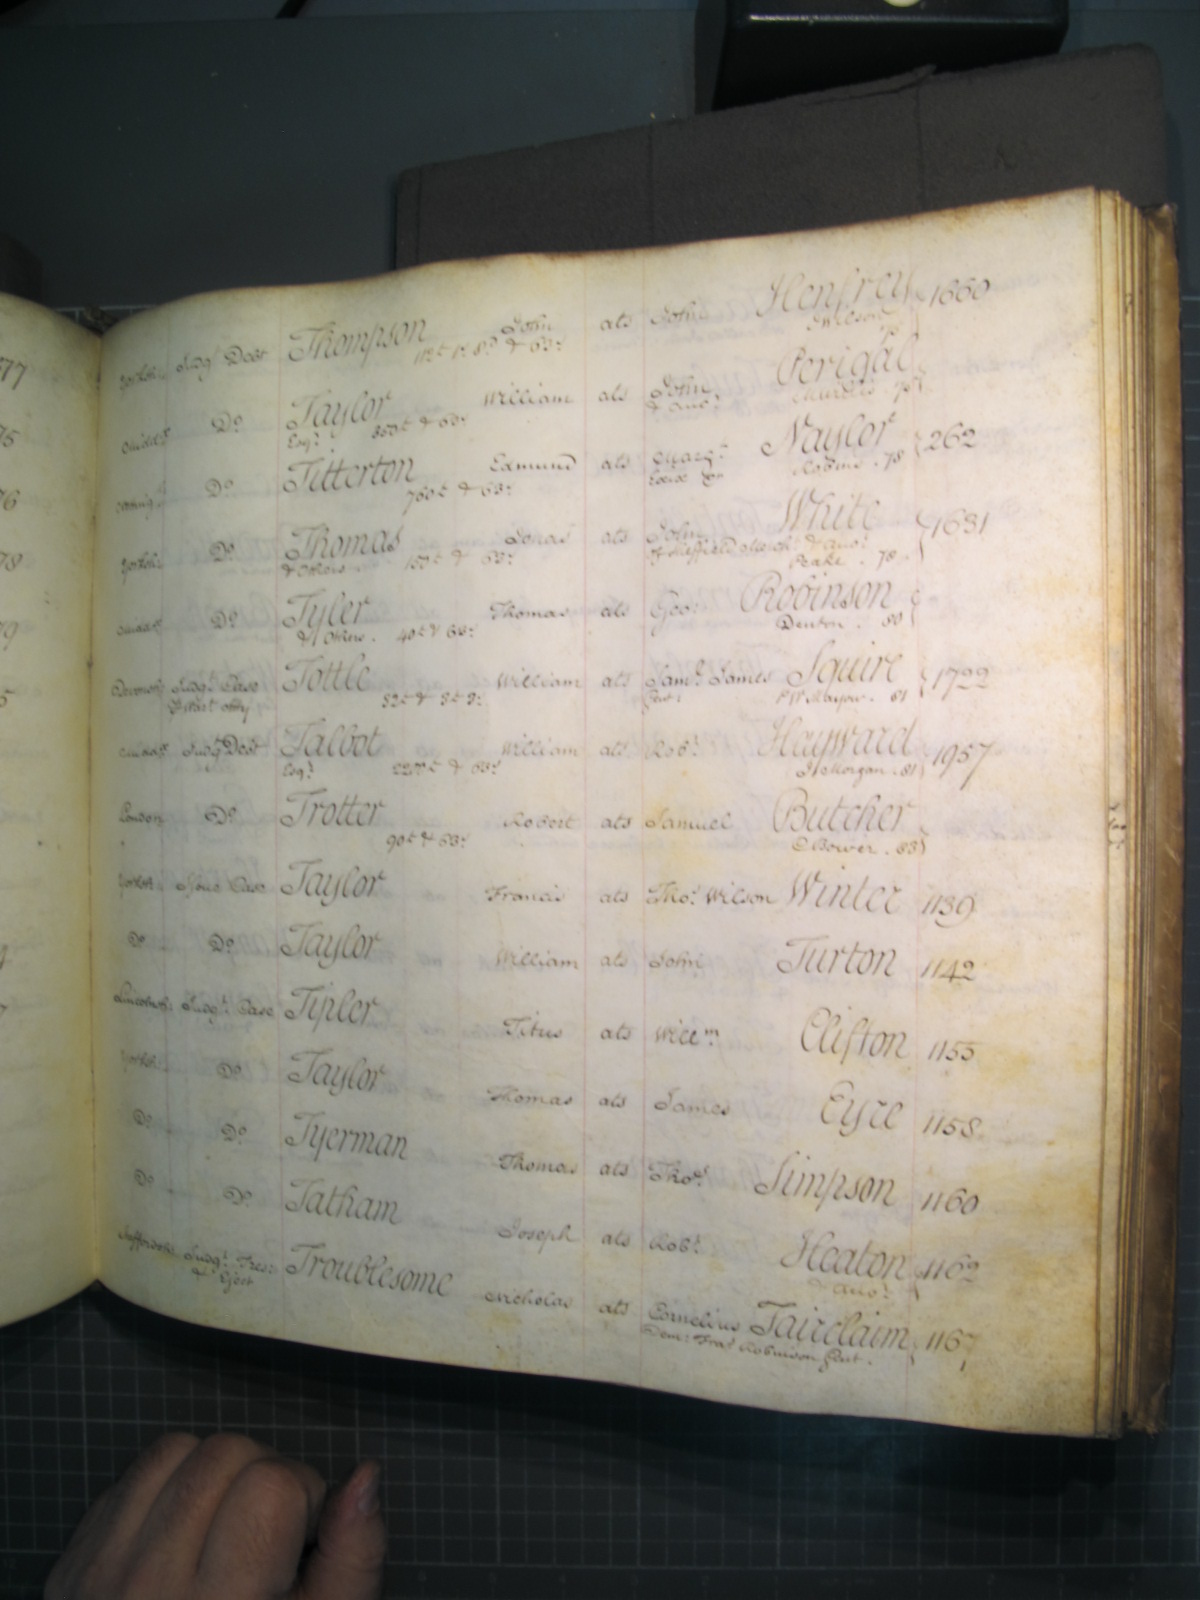 577
75
76
78
79
5
4
7
Yorksh: Judgt Debt Thompson John ats John Henfrey 1660
112£ 1s 8d & 63s Wilson 78
Do Taylor William ats John Perigal
Esqr 800£ & 63s & anor 78
Do Titterton Edmund ats Margt Naylor 262
760£ & 63s Robins . 78
Yorksh: Do Thomas Jonas ats John White 1631
& Others 150£ & 63s of Sheffield & anor
Peake . 78
Middx Do Tyler Thomas ats Geo: Robinson
& Others . 40£ & 63s Denton . 80
Devonsh: Judgt Case Tottle William ats Saml James Squire 1722
Gent: 81
Middx Judgt Debt Talbot William ats Robt Hayward 1957
Esqr 2200£ & 63s Js Morgan . 81
London Do Trotter Robert ats Samuel Butcher
90£ & 63s C Bower . 83
Yorksh: Issue Case Taylor Francis ats Thos Wilson Winter 1139
Do Do Taylor William ats John Turton 1142
Lincolnsh: Judgt Case Tipler Titus ats Willm Clifton 1155
Yorksh: Do Taylor Thomas ats James Eyre 1158
Do Do Tyerman Thomas ats Thos Simpson 1160
Do Do Tatham Joseph ats Robt Heaton 1162
& anor
Staffordsh: Judgt Tres: Troublesome Nicholas ats Cornelius Fairclaim 1167
& Eject Dem: Fras Robinson Gent .